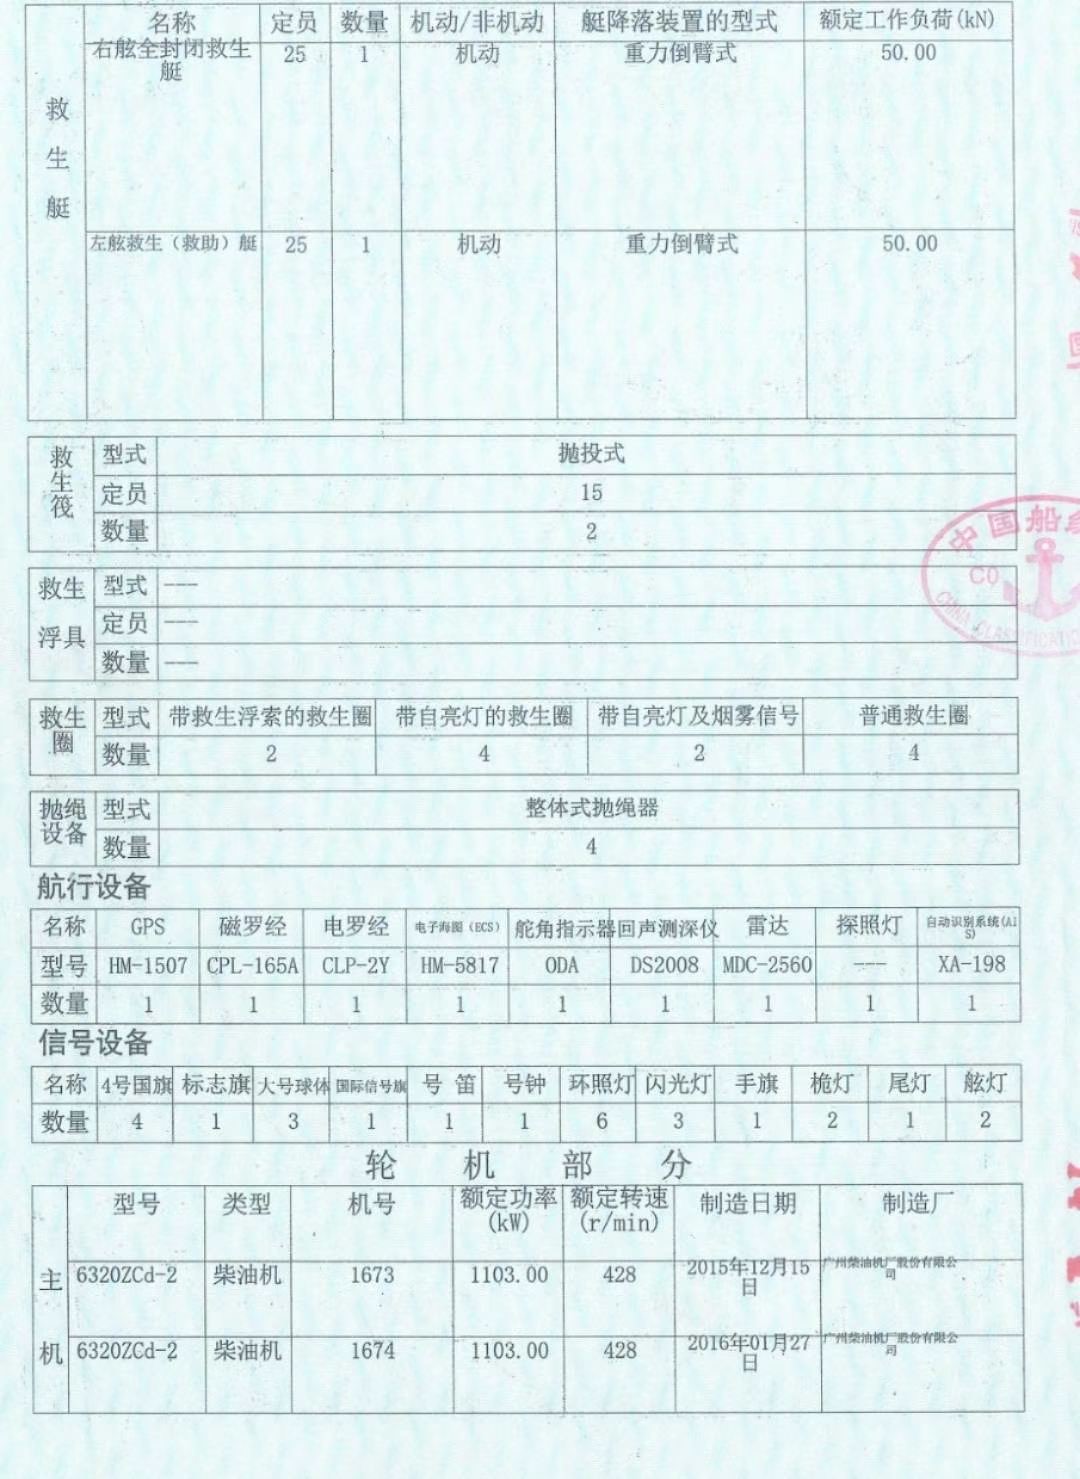 名称 定员 数量 机动/非机动 艇降落装置的型式 额定工作负荷(kN)
救生艇
右舷全封闭救生艇 25 1 机动 重力倒臂式 50.00
左舷救生（救助）艇 25 1 机动 重力倒臂式 50.00
救生筏
型式 抛投式
定员 15
数量 2
救生浮具
型式 ---
定员 ---
数量 ---
救生圈
型式 带救生浮索的救生圈 带自亮灯的救生圈 带自亮灯及烟雾信号 普通救生圈
数量 2 4 2 4
抛绳设备
型式 整体式抛绳器
数量 4
中国船
CO
CHINA CLASSIFICATIO
航行设备
名称 GPS 磁罗经 电罗经 电子海图（ECS） 舵角指示器 回声测深仪 雷达 探照灯 自动识别系统(AIS)
型号 HM-1507 CPL-165A CLP-2Y HM-5817 ODA DS2008 MDC-2560 --- XA-198
数量 1 1 1 1 1 1 1 1 1
信号设备
名称 4号国旗 标志旗 大号球体 国际信号旗 号 笛 号钟 环照灯 闪光灯 手旗 桅灯 尾灯 舷灯
数量 4 1 3 1 1 1 6 3 1 2 1 2
轮 机 部 分
主机
型号 类型 机号 额定功率(kW) 额定转速(r/min) 制造日期 制造厂
6320ZCd-2 柴油机 1673 1103.00 428 2015年12月15日 广州柴油机厂股份有限公司
6320ZCd-2 柴油机 1674 1103.00 428 2016年01月27日 广州柴油机厂股份有限公司